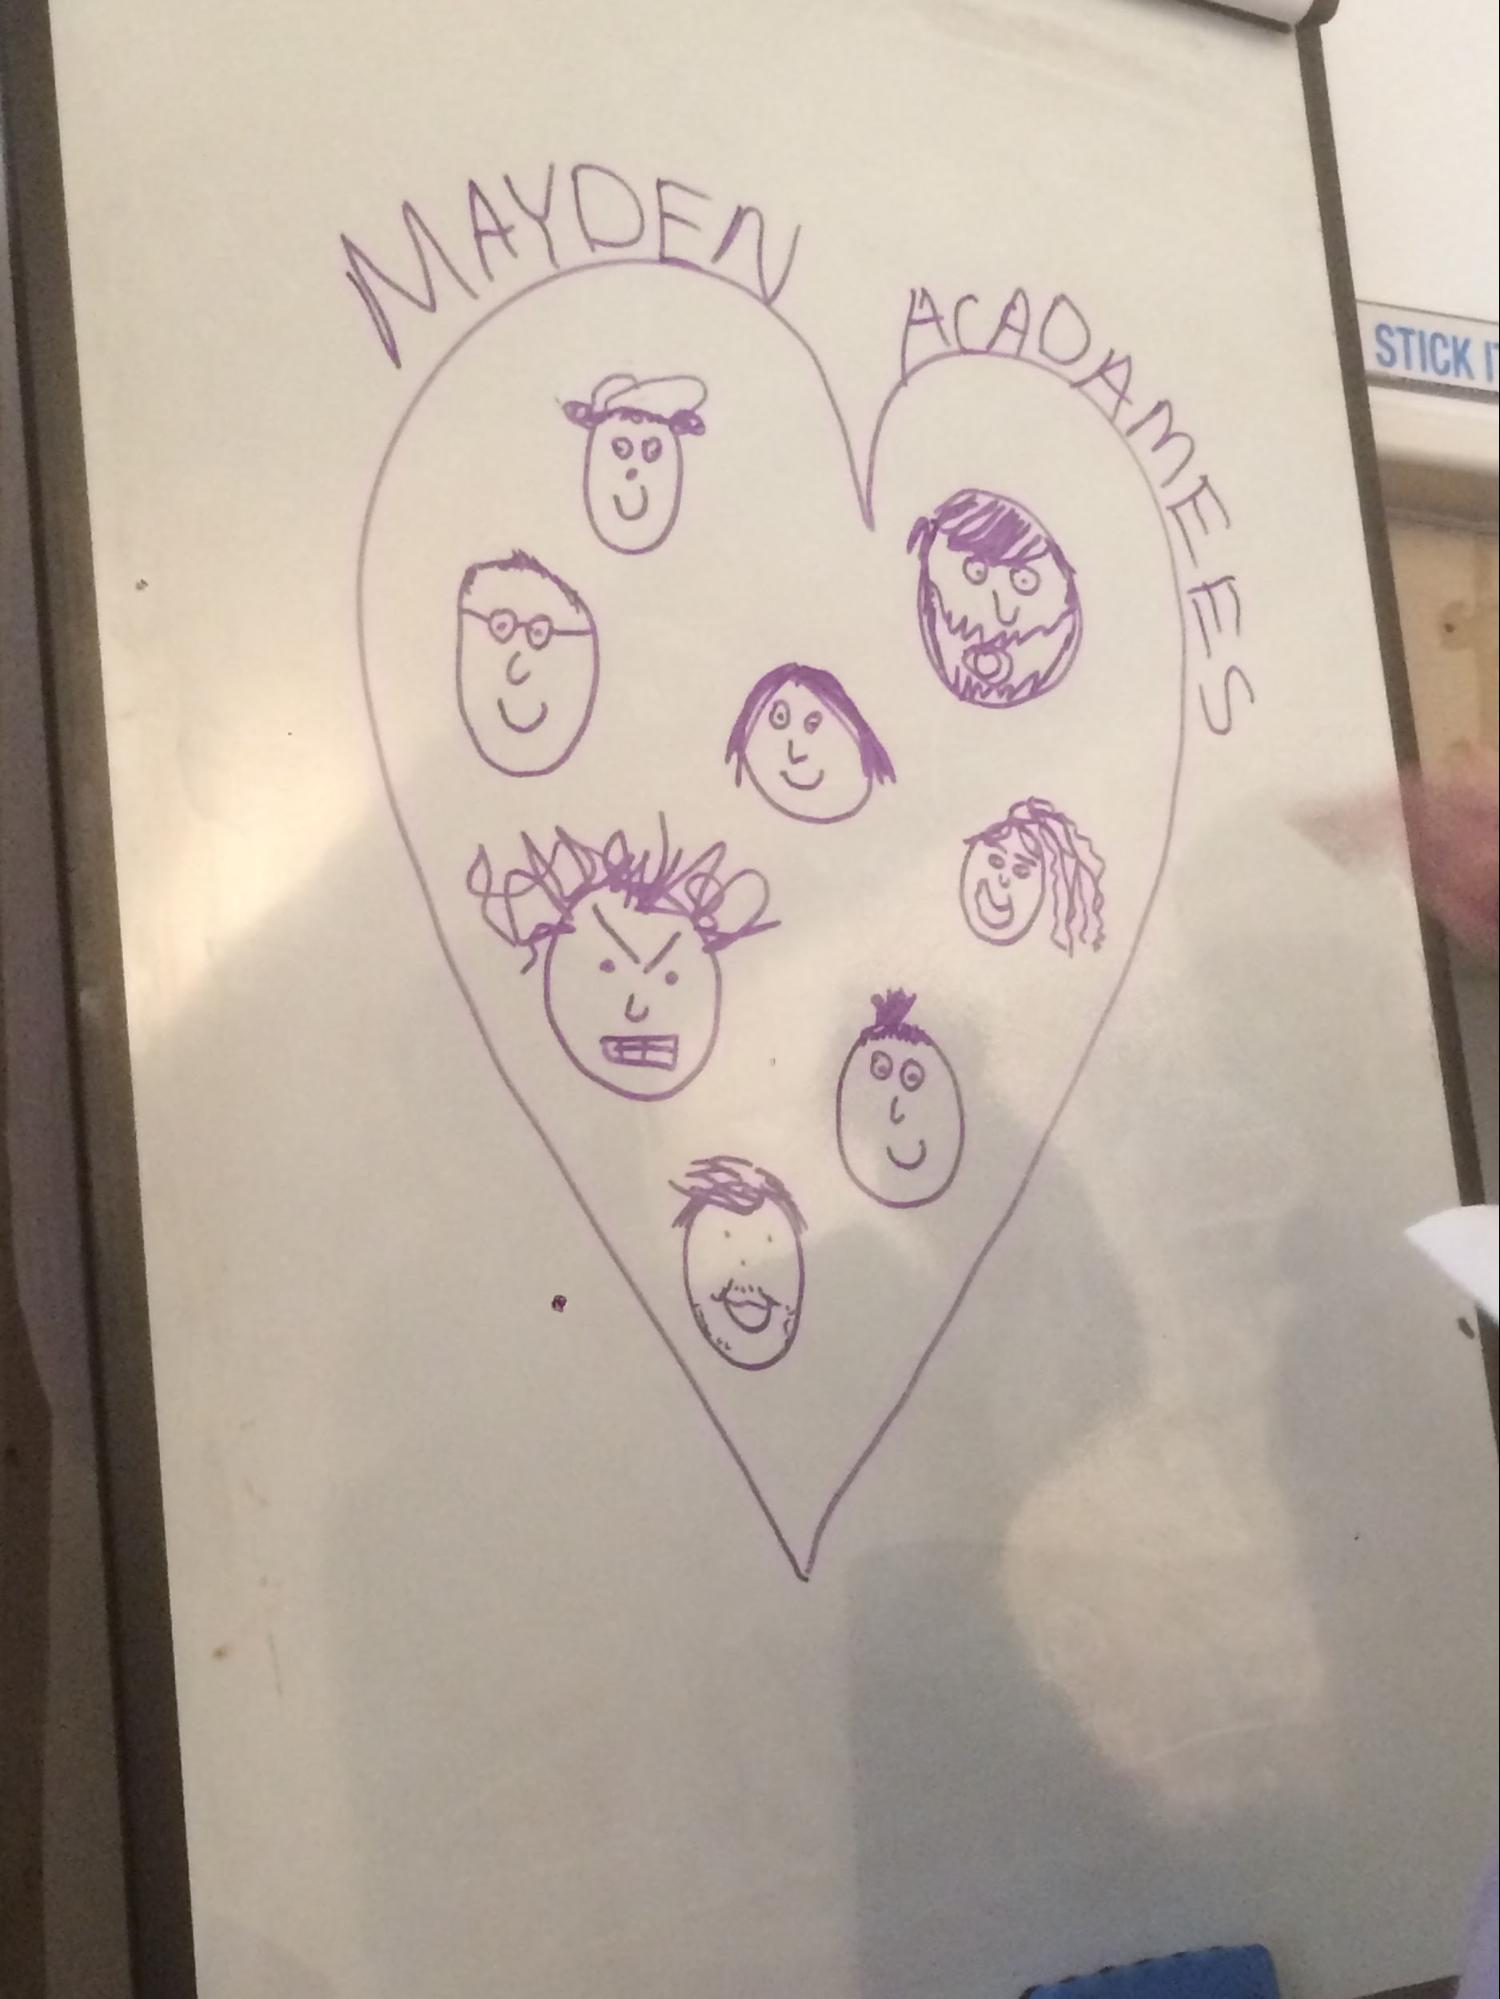 MAYDEN ACADAMEES
STICK IT